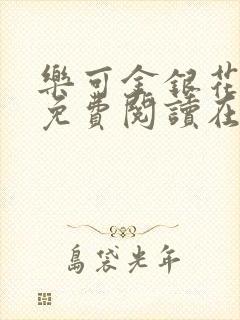 樂可金銀花
免費閱讀在
島袋光年